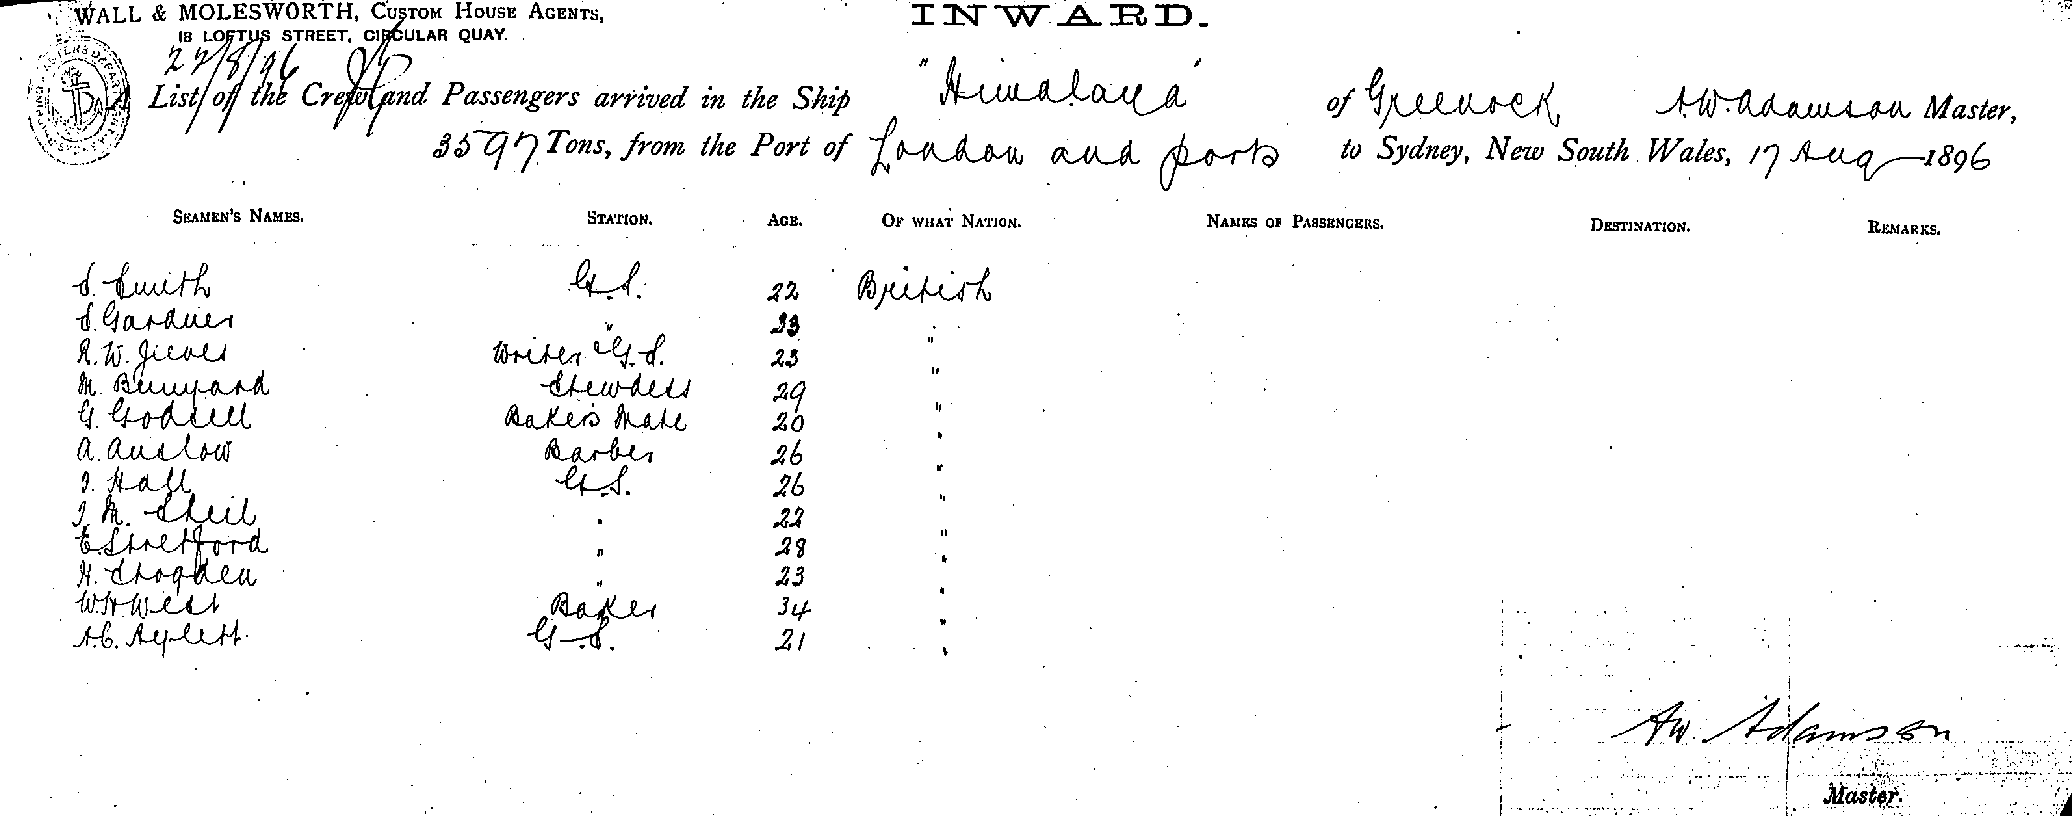 WALL & MOLESWORTH, CUSTOM HOUSE AGENTS,
18 LOFTUS STREET, CIRCULAR QUAY.
INWARD.
22/8/96
A List of the Crew and Passengers arrived in the Ship "Himalaya" of Greenock A.W. Adamson Master,
3597 Tons, from the Port of London and ports to Sydney, New South Wales, 17 Aug 1896
SEAMEN'S NAMES. STATION. AGE. OF WHAT NATION. NAMES OF PASSENGERS. DESTINATION. REMARKS.
S. Smith G.S. 22 British
S. Gardner " 23 "
R.W. Jieves Writer & G.S. 23 "
M. Bunyard Stewdess 29 "
G. Godsell Bakers Mate 20 "
A. Auslow Barber 26 "
J. Hall G.S. 26 "
J. M. Sheil " 22 "
E. Stretford " 28 "
H. Shogden " 23 "
W.H West Baker 34 "
A.C. Aylett G.S. 21 "
AW. Adamson
Master.